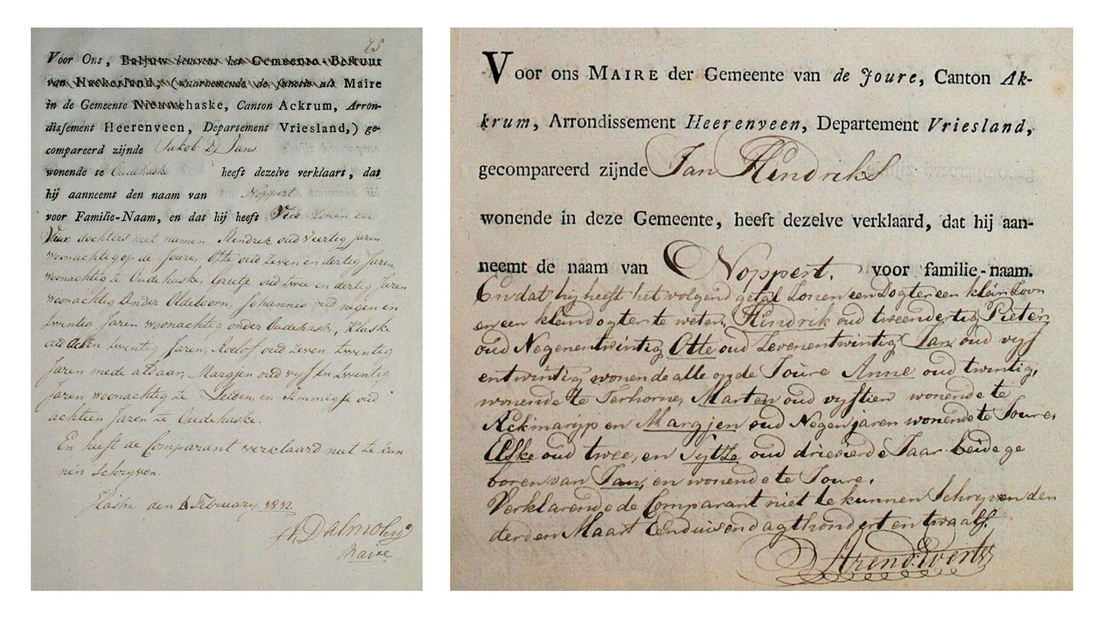 75
Voor Ons, Baljuw benevens het Gemeente-Bestuur
van Haskerland, (waarnemende de functie als Maire
in de Gemeente Nieuwehaske, Canton Ackrum, Arron-
dissement Heerenveen, Departement Vriesland,) ge-
compareerd zijnde Jakob Jans
wonende te Oudehaske heeft dezelve verklaart, dat
hij aanneemt den naam van Noppert
voor Familie-Naam, en dat hij heeft Vier Zonen en
Vier dochters met namen Hendrik oud Veertig Jaren
woonachtig op de Joure, Otte oud Zeven en dertig Jaren
woonachtig te Oudehaske, oud twee en dertig Jaren
woonachtig onder Oldeboorn, Johannes oud negen en
twintig Jaren woonachtig onder Oudehaske, Klaske
oud Acht en twintig Jaren, Roelof oud Zeven en twintig
Jaren mede aldaar, Margjen oud vyf en twintig
Jaren woonachtig te Leiden, en Jemmigje oud
achtien Jaren te Oudehaske.
En heeft de Comparant verklaard niet te kun
nen Schryven.
Haske den February 1812
Dalmolen
Maire
Voor ons MAIRE der Gemeente van de Joure, Canton Ak-
krum, Arrondissement Heerenveen, Departement Vriesland,
gecompareerd zijnde Jan Hindriks
wonende in deze Gemeente, heeft dezelve verklaard, dat hij aan-
neemt de naam van Noppert. voor familie-naam.
En dat hij heeft het volgend getal Zonen een Dogter een klein Zoon
en een klein dogter te weten, Hindrik oud tweendertig Pieter
oud Negenentwintig Otte oud Zevenentwintig Jan oud vyf
entwintig wonende alle op de Joure Anne oud twintig,
wonende te Terhorne, Marten oud vyftien wonende te
Ackmaryp en Margjen oud Negen jaren wonende te Joure,
Elske oud twee, en Sytze oud drievierde Jaar beide ge
boren van Jan, en wonende te Joure,
Verklarende de Comparant niet te kunnen Schryven den
derden Maart Eenduisend agthondert en twaalf.